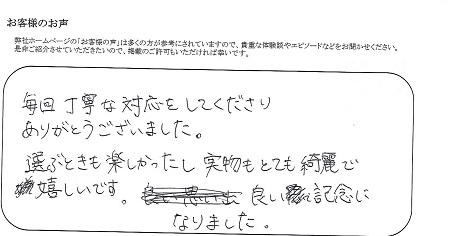 お客様のお声
弊社ホームページの「お客様の声」は多くの方が参考にされていますので、貴重な体験談やエピソードなどをお聞かせください。
是非ご紹介させていただきたいので、掲載のご許可もいただければ幸いです。
毎回丁寧な対応をしてくださり
ありがとうございました。
選ぶときも楽しかったし実物もとても綺麗で
嬉しいです。良い思い出 良い記念に
なりました。